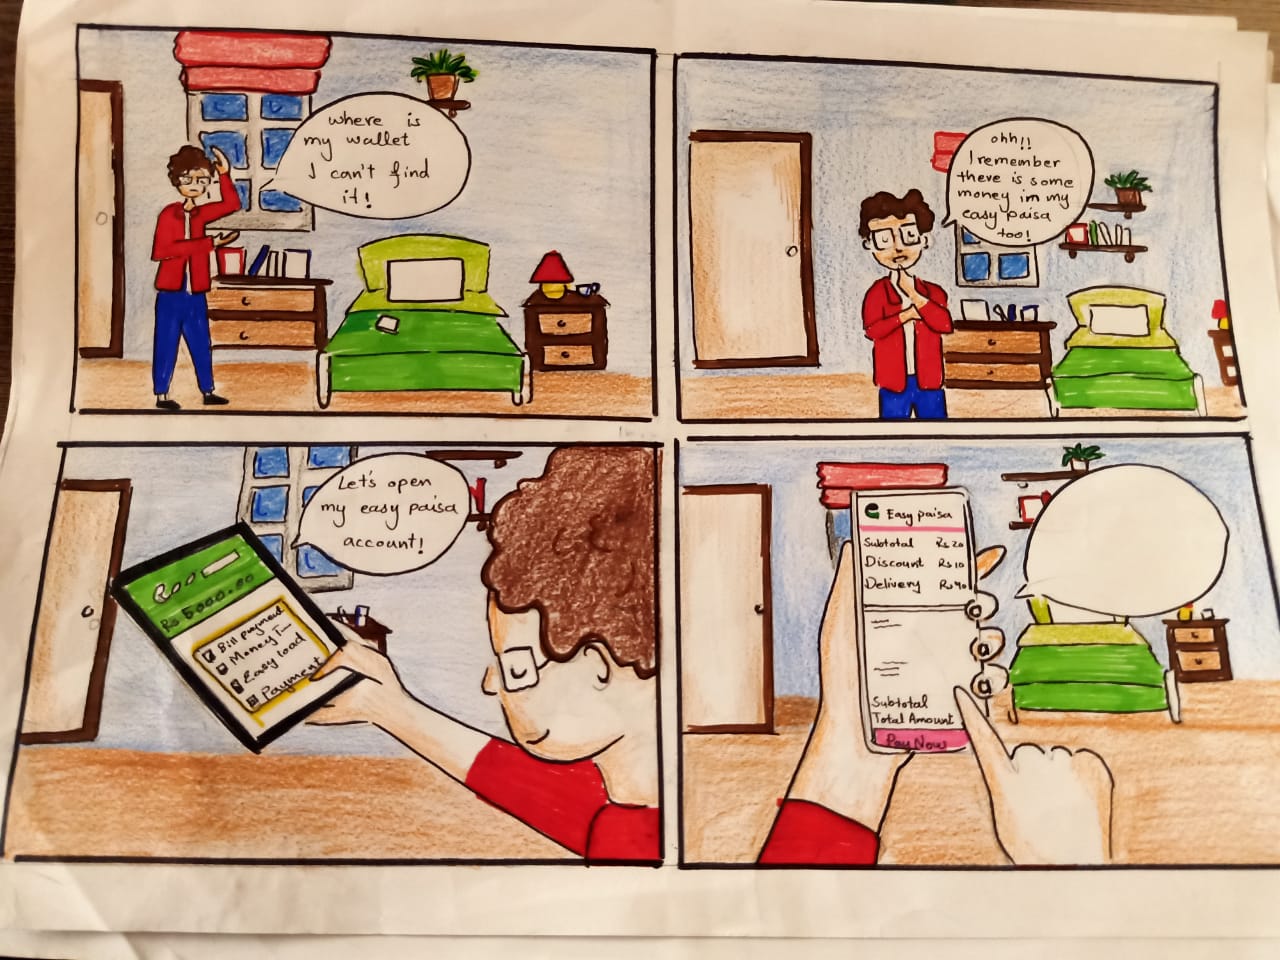 where is
my wallet
I can't find
it!
ohh!!
I remember
there is some
money in my
easy paisa
too!
Let's open
my easy paisa
account!
Rs 5000.00
Bill payment
Money T
Easy load
Payment
e Easy paisa
Subtotal Rs 20
Discount Rs 10
Delivery Rs 40
Subtotal
Total Amount
Pay Now